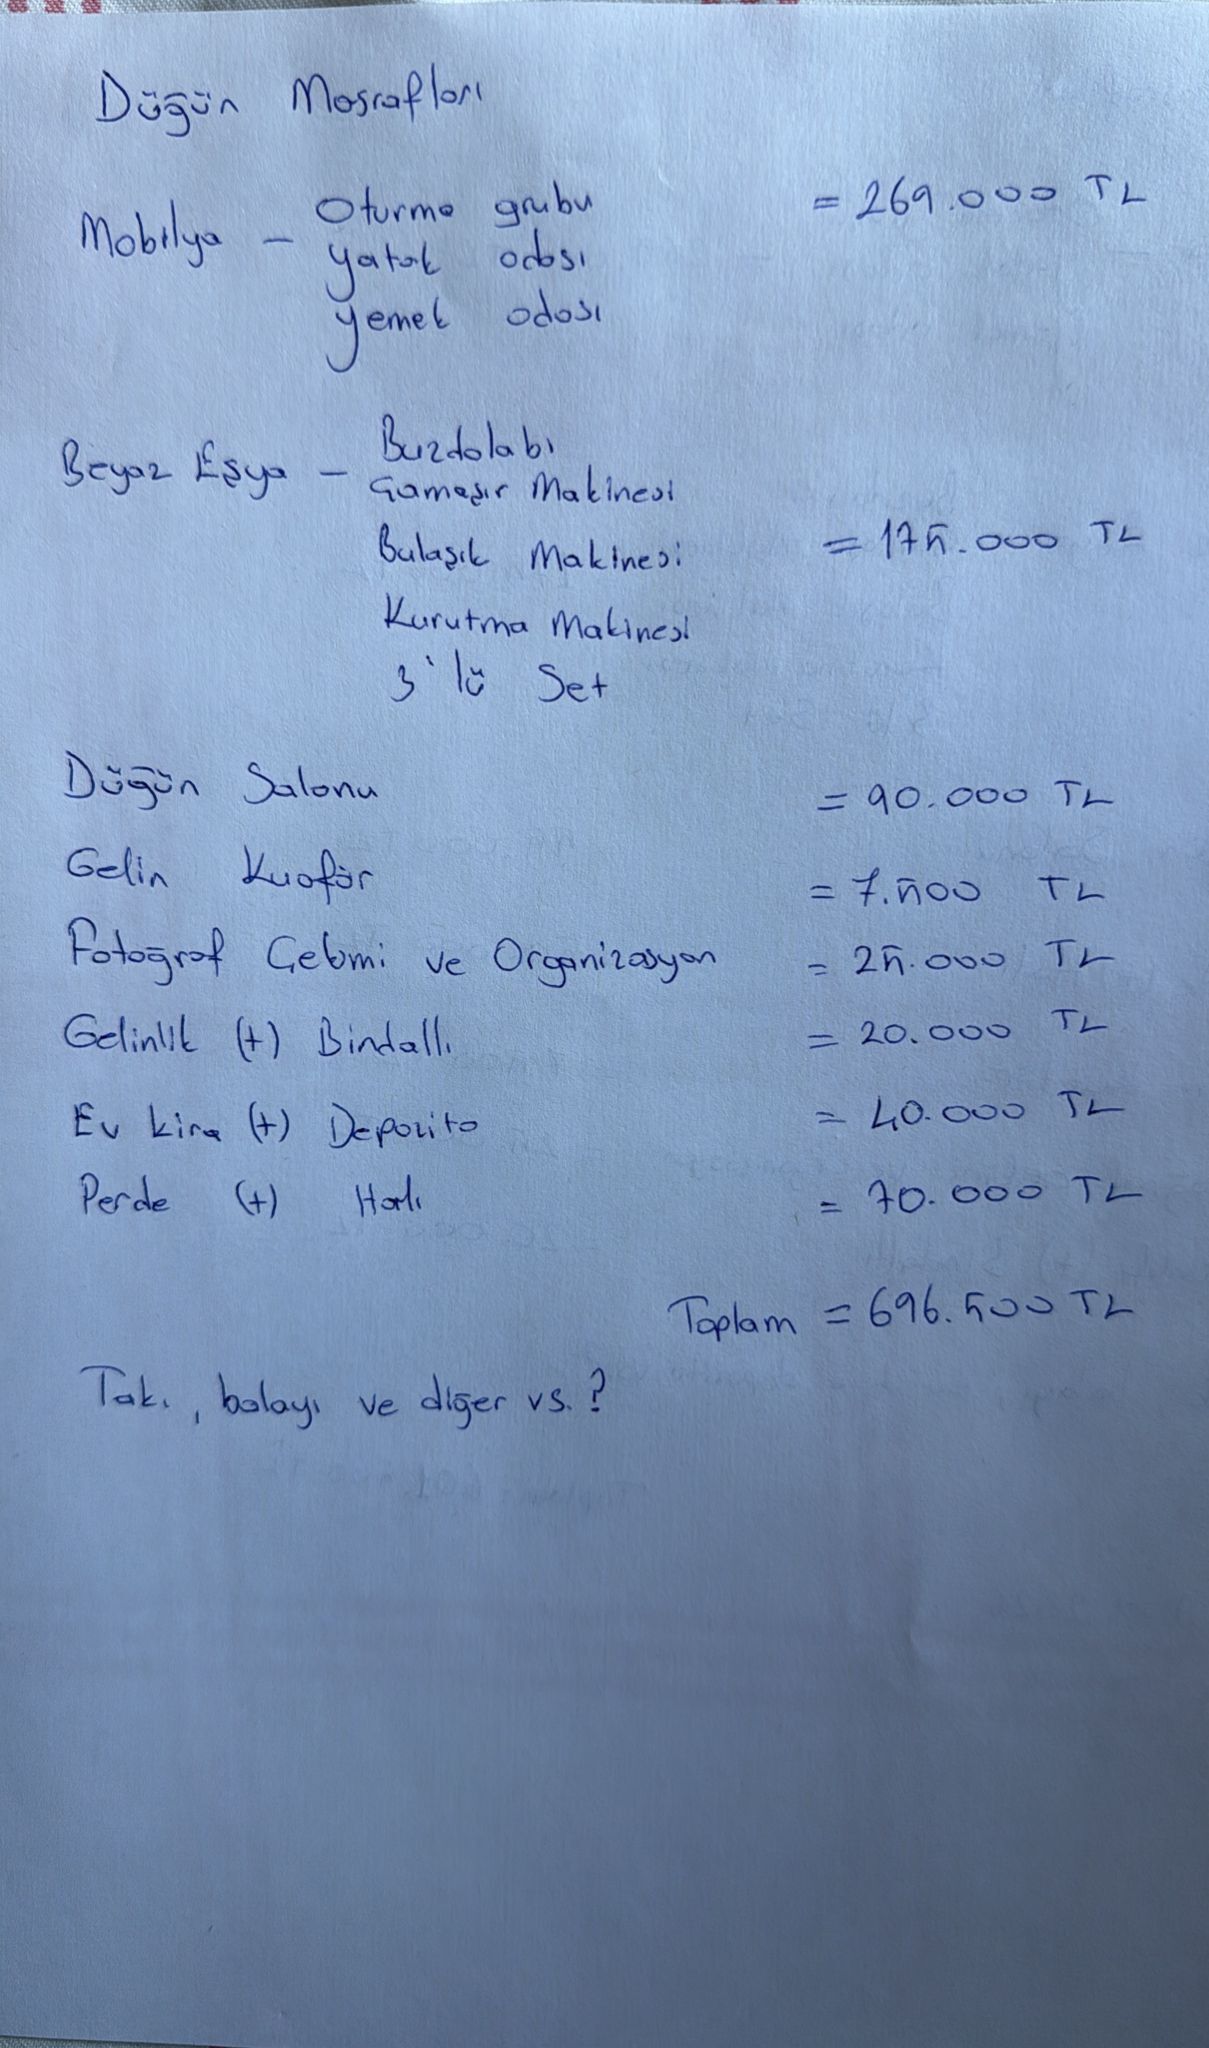 Düğün Masrafları
Mobilya – Oturma grubu = 269.000 TL
yatak odası
yemek odası
Beyaz Eşya – Buzdolabı
Çamaşır Makinesi
Bulaşık Makinesi = 175.000 TL
Kurutma Makinesi
3'lü Set
Düğün Salonu = 90.000 TL
Gelin Kuaför = 7.500 TL
Fotoğraf Çekimi ve Organizasyon = 25.000 TL
Gelinlik (+) Bindallı = 20.000 TL
Ev kira (+) Depozito = 40.000 TL
Perde (+) Halı = 70.000 TL
Toplam = 696.500 TL
Takı, balayı ve diğer vs.?